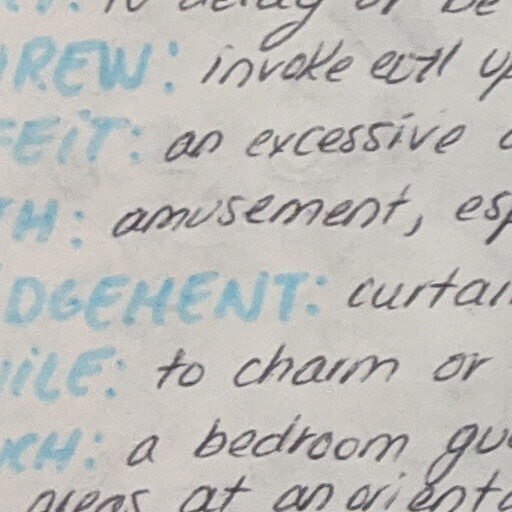 to delay or be
REW: invoke evil up
FEIT: an excessive
TH: amusement, esp
DGEMENT: curtai
ILE: to charm or
CH: a bedroom gu
areas at an orient